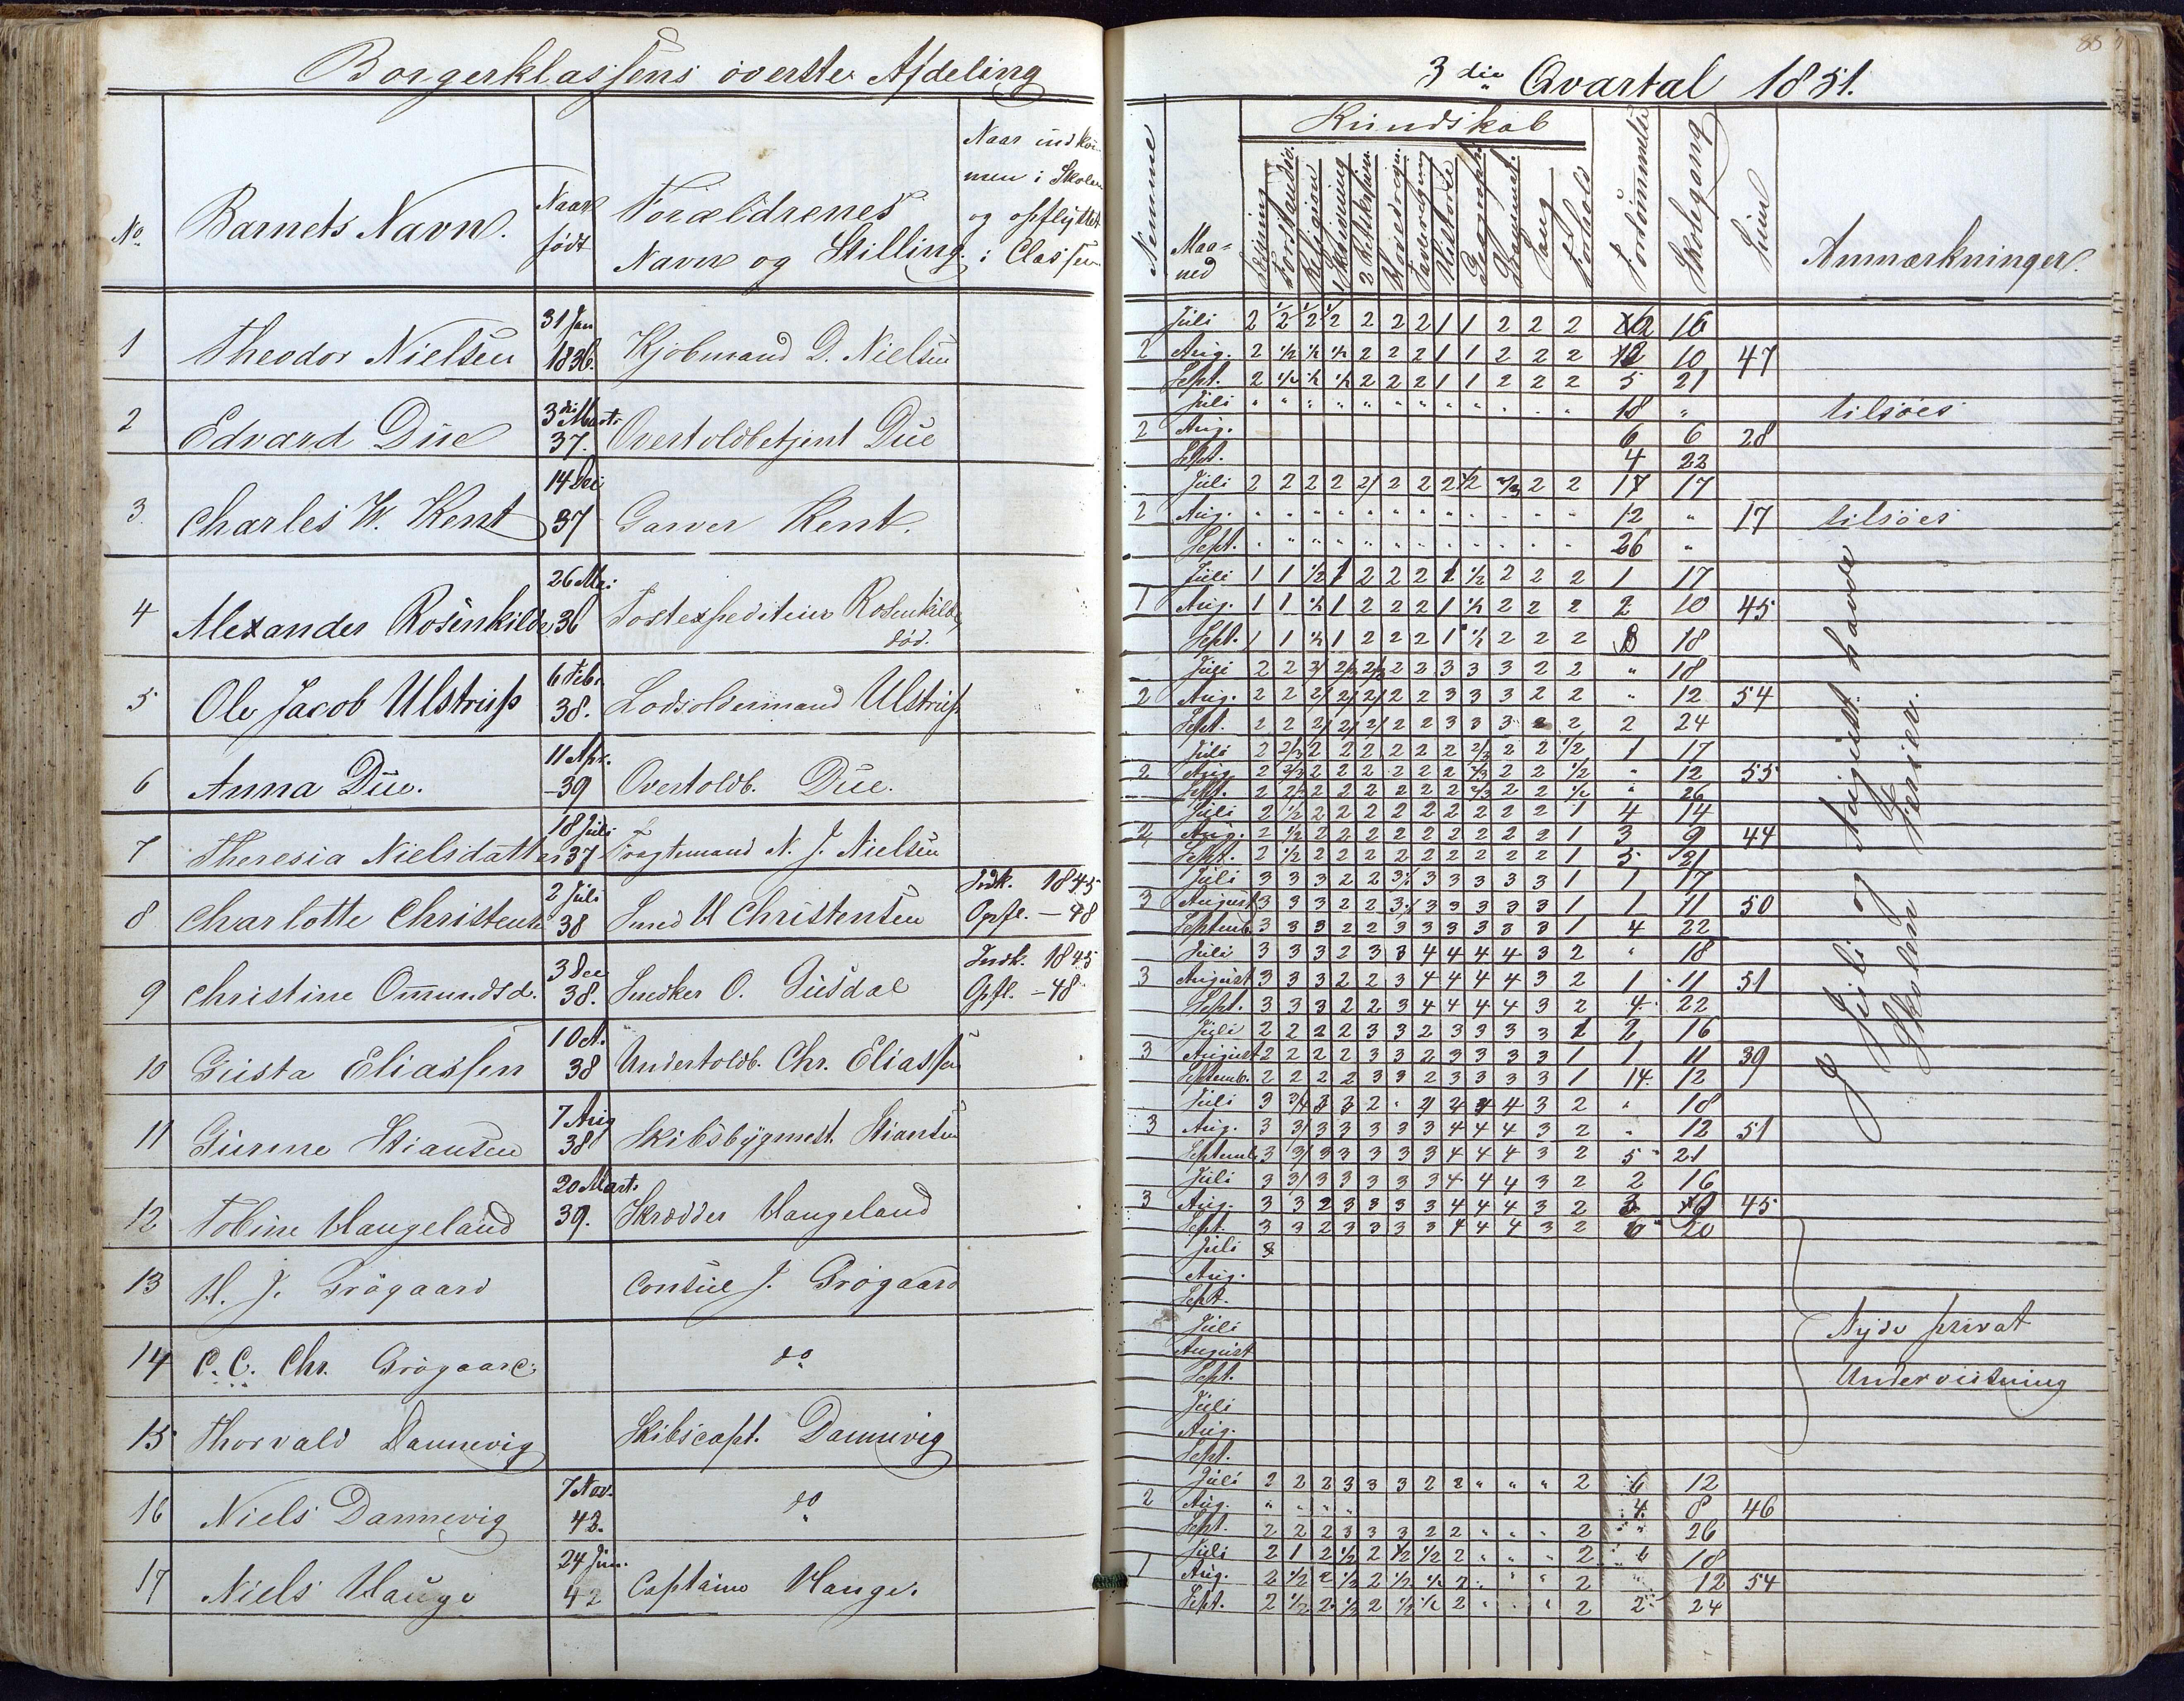 Borgerklassens överste Afdeling
No. Barnets Navn. Naar født Forældrenes Navn og Stilling. Naar indkommen i Skolen og opflyttet i Classen
1 Theodor Nielsen 31 Jan 1836. Kjöbmand D. Nielsen
2 Edvard Due 3die Marts 37. Overtoldbetjent Due
3. Charles W. Kent 14 Dec 37 Garver Kent.
4 Alexander Rosenkilde 26 Mai 36 Postexpediteur Rosenkilde, död.
5 Ole Jacob Ulstrup 6 Febr. 38. Lodsoldermand Ulstrup
6 Anna Due. 11 Apr. -39 Overtoldb. Due.
7 Theresia Nielsdatter 18 Juli 37 Fragtemand N. J. Nielsen
8 Charlotte Christensen 2 Juli 38 Smed H Christensen Indk. 1845 Opfl. - 48
9 Christine Omundsd. 3 Dec 38. Snedker O. Gusdal Indk. 1845 Opfl. - 48
10 Gusta Eliassen 10 38 Undertoldb. Chr. Eliassen
11 Gunne Stiansen 7 Aug 38 Skibsbygmest. Stiansen
12 Tobine Haugeland 20 Mart. 39. Skrædder Haugeland
13 H. J. Grögaard Consul J. Grögaard
14 C. C. Chr. Grögaard do
15 Thorvald Dannevig Skibscapt. Dannevig
16 Niels Dannevig 7 Nov. 42. do
17 Niels Hauge 24 Jun. 42 Captaine Hauge.
85
3die Qvartal 1851.
Kundskab
Nemme Maaned Læsning Forstandsö. Religion Skrivning Retskrivn. Hovedregn. Tavleregning Historie Geograph. Sang Forhold Forsömmelse Skolegang Sum Anmærkninger.
Juli 2 2 2 2 2 2 2 1 1 2 2 2 12 16
2 Aug. 2 1/2 1/2 1/2 2 2 2 1 1 2 2 2 12 10 47
Sept. 2 1/2 1/2 1/2 2 2 2 1 1 2 2 2 5 21
Juli " " " " " " " " " " " " 18 " tilsöes
2 Aug. 6 6 28
Sept. 4 22
Juli 2 2 2 2 2/ 2 2 2 1/2 2/3 2 2 17 17
2 Aug. " " " " " " " " " " " " 12 " 17 tilsöes
Sept. " " " " " " " " " " " " 26 "
Juli 1 1 1/2 1 2 2 2 1 1/2 2 2 2 1 17
1 Aug. 1 1 1/2 1 2 2 2 1 1/2 2 2 2 2 10 45
Sept. 1 1 1/2 1 2 2 2 1 1/2 2 2 2 8 18
Juli 2 2 3/ 2/3 2/3 2 2 3 3 3 2 2 " 18
2 Aug. 2 2 2/ 2/ 2/ 2 2 3 3 3 2 2 " 12 54
Sept. 2 2 2/ 2/ 2/ 2 2 3 3 3 2 2 2 24
Juli 2 2/3 2 2 2 2 2 2 2/3 2 2 1/2 1 17
2 Aug. 2 2/3 2 2 2 2 2 2 2/3 2 2 1/2 " 12 55
Sept. 2 2/3 2 2 2 2 2 2 2/3 2 2 1/2 " 26
Juli 2 1/2 2 2 2 2 2 2 2 2 2 1 4 14
2 Aug. 2 1/2 2 2 2 2 2 2 2 2 2 1 3 9 44
Sept. 2 1/2 2 2 2 2 2 2 2 2 2 1 5 21
Juli 3 3 3 2 2 3/ 3 3 3 3 3 1 1 17
3 August 3 3 3 2 2 3/ 3 3 3 3 3 1 1 11 50
Septemb. 3 3 3 2 2 3 3 3 3 3 3 1 4 22
Juli 3 3 3 2 3 3 4 4 4 4 3 2 " 18
3 August 3 3 3 2 2 3 4 4 4 4 3 2 1 11 51
Sept. 3 3 3 2 2 3 4 4 4 4 3 2 4 22
Juli 2 2 2 2 3 3 2 3 3 3 3 1 2 16
3 August 2 2 2 2 3 3 2 3 3 3 3 1 1 11 39
Septemb. 2 2 2 2 3 3 2 3 3 3 3 1 14 12
Juli 3 3/4 4 3 2 " 18
3 Aug. 3 3/ 3 3 3 3 3 4 4 4 3 2 " 12 51
Septemb. 3 3/ 3 3 3 3 3 4 4 4 3 2 5 21
Juli 3 3/ 3 3 3 3 3 4 4 4 3 2 2 16
3 Aug. 3 3 2 3 3 3 3 4 4 4 3 2 3 9 45
Sept. 3 3 2 3 3 3 3 4 4 4 3 2 6 20
Juli 3
Aug.
Sept.
Juli
August
Sept.
Juli
Aug.
Sept.
Nyde privat
Undervisning
Juli 2 2 2 3 3 3 2 2 " " " 2 6 12
2 Aug. " " " " 4 8 46
Sept. 2 2 2 3 3 3 2 2 " " " 2 " 26
Juli 2 1 2 1/2 2 1/2 1/2 2 " " " 2 " 18
1 Aug. 2 1/2 2 1/2 2 1/2 1/2 2 " " " 2 " 12 54
Sept. 2 1/2 2 1/2 2 1/2 1/2 2 " " " 2 2 24
I Juli og August havde
Skolen Ferier.